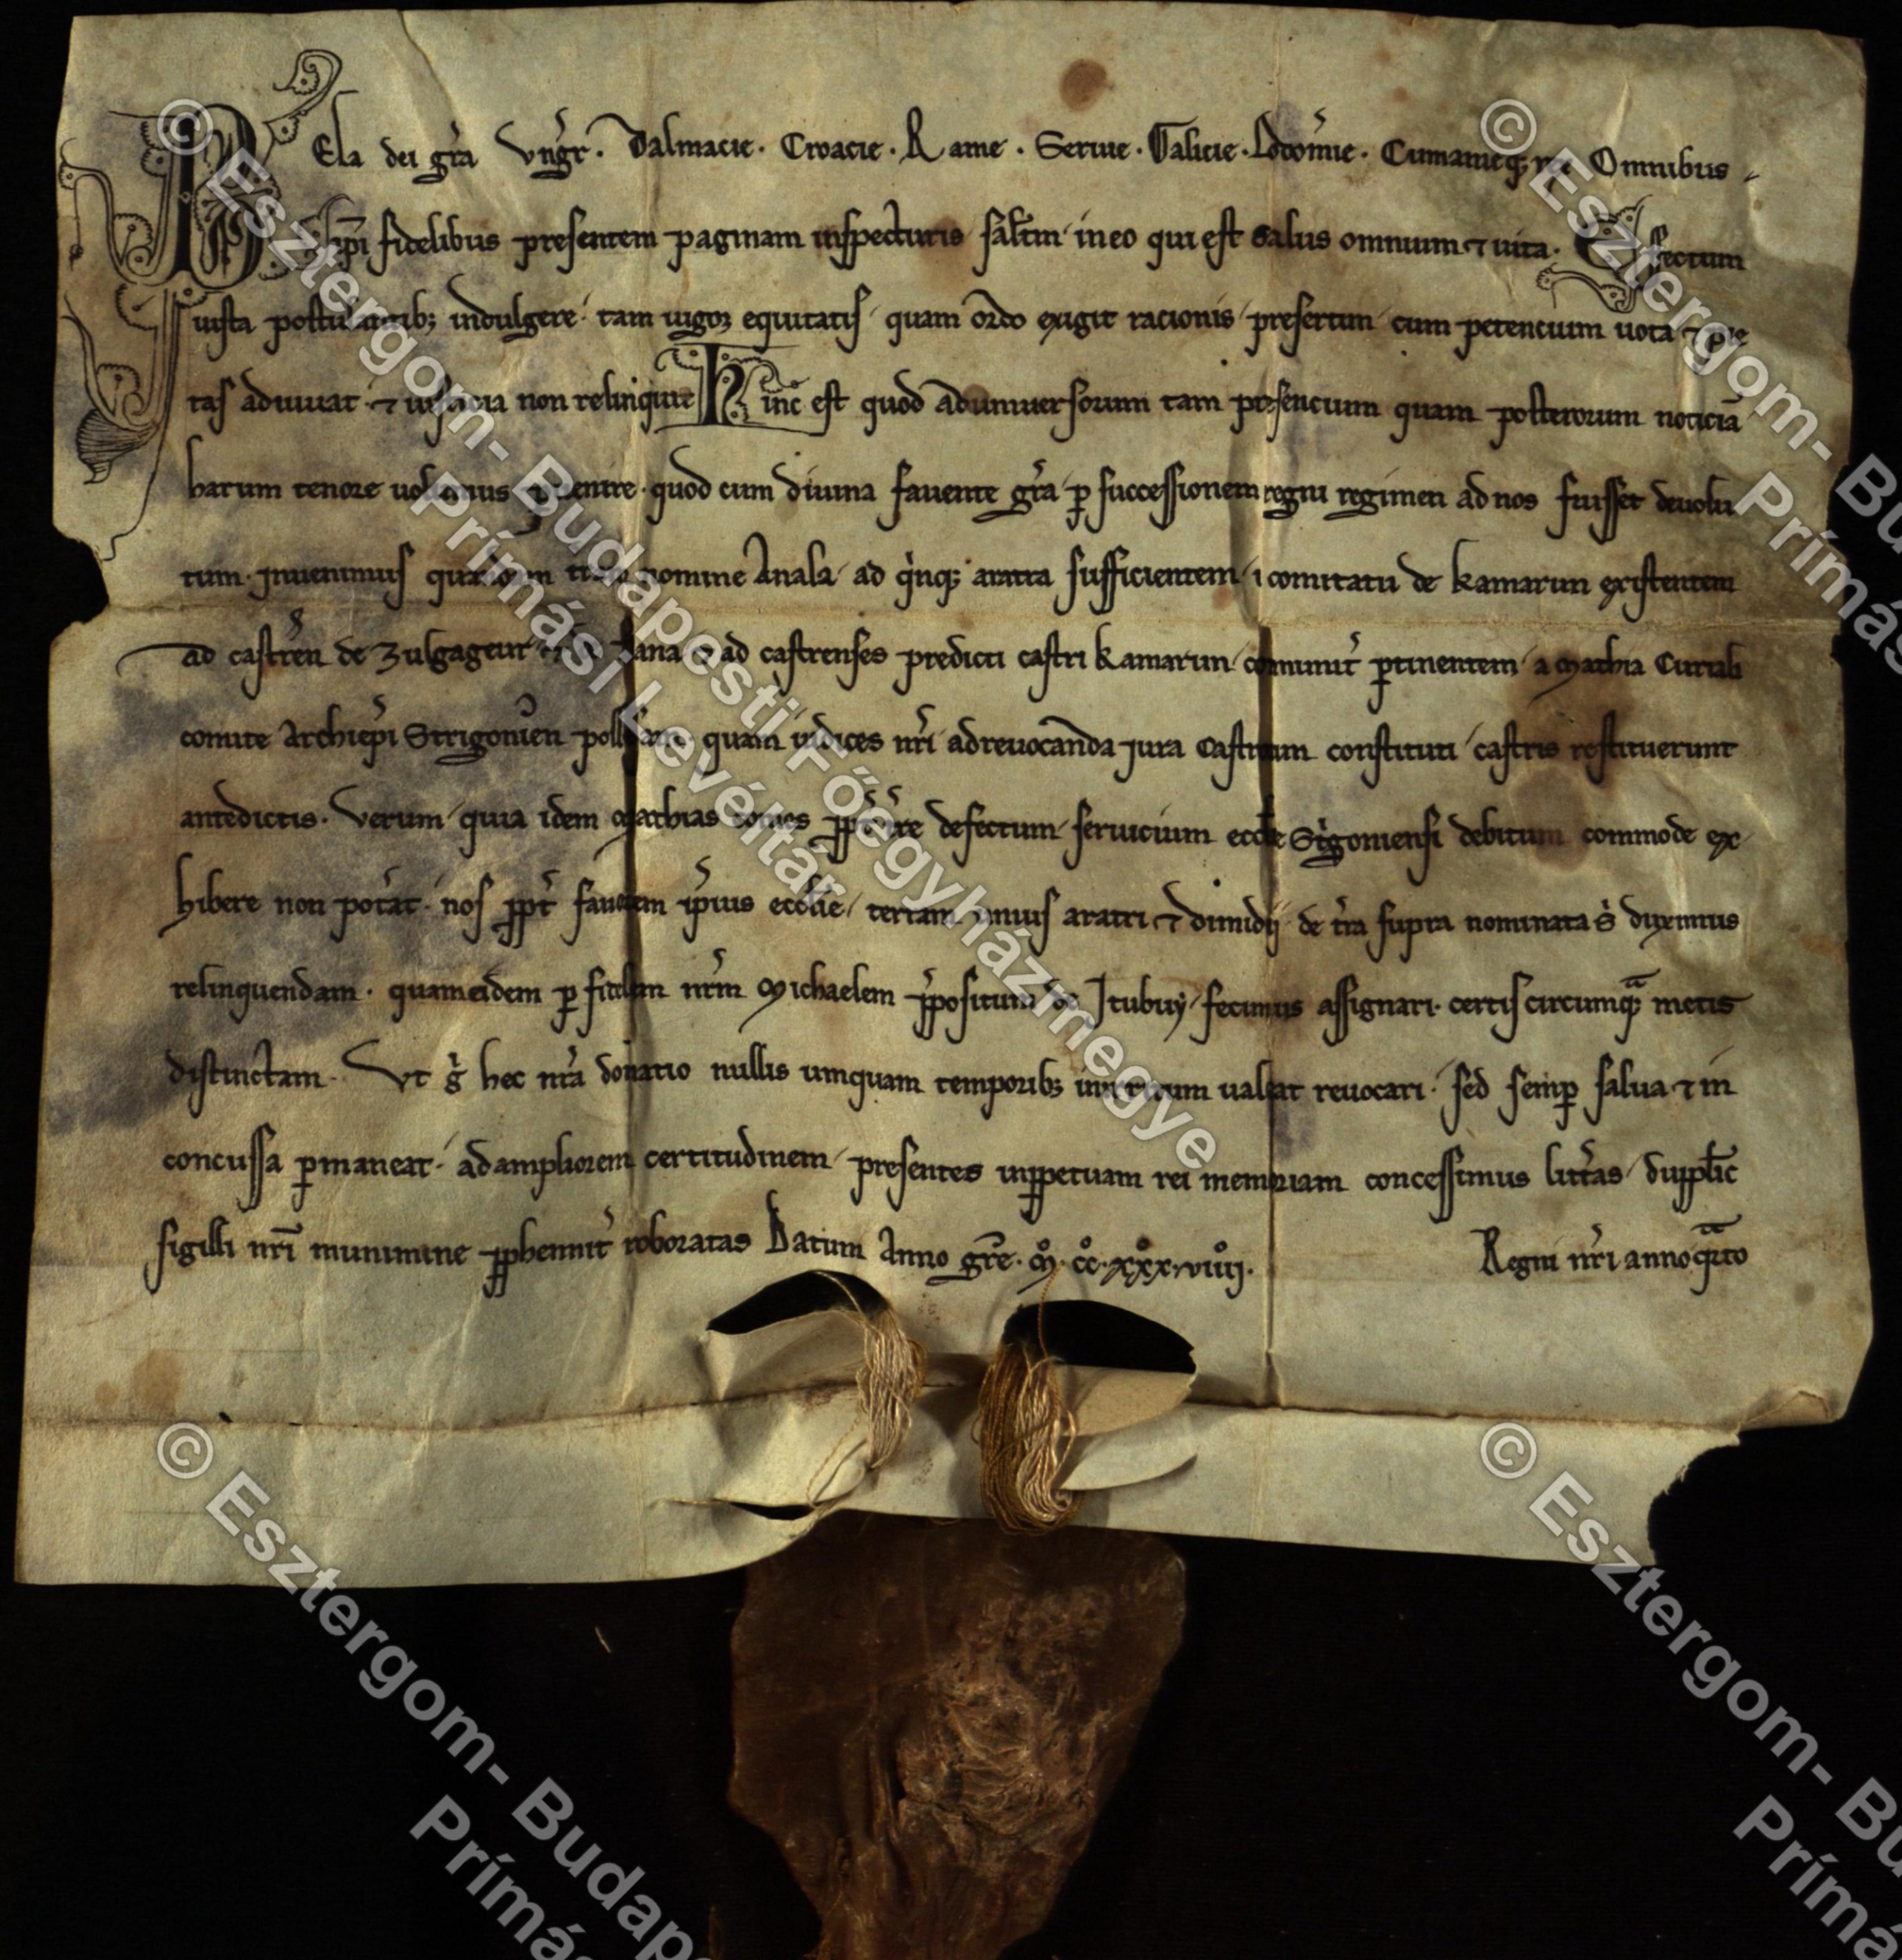 BEla dei gr̄a Vngr̄. Dalmacie. Croacie. Rame. Seruie. Galicie. Lodom̄ie. Cumanieq; rex Omnibus
xp̄i fidelibus presentem paginam inspecturis salt̄m in eo qui est salus omnium ⁊ uita. Effectum
iusta postulantib; indulgere tam uigor equitatis quam ordo exigit racionis presertim cum petencium uota ⁊ pie
tas adiuuat ⁊ iusticia non relinquit Hinc est quod ad uniuersorum tam presencium quam posterorum noticiā
harum tenore uolumus peruenire quod cum diuina fauente gr̄a p̱ successionem regni regimen ad nos fuisset deuolu
tum. Inuenimus quandam nomine Anala ad q̇nq; aratra sufficientem ī comitatu de Kamarun existentem
ad castrēn de Zulgageur ad castrenses predicti castri Kamarun comunit̄ p̱tinentem a Mathia Curiali
comite Archiep̄i Strigoniēn quam iudices nr̄i ad reuocanda iura castrorum constituti castris restituerunt
antedictis. Verum quia idem Mathias comes defectum seruicium eccl̄ie Stigoniensi debitum commode ex
hibere non pot̄at. nos ꝓpt̄ fauorem ip̄ius eccl̄ie terram unius aratri ⁊ dimidij de t̄ra supra nominata s̄ duximus
relinquendam. quam eidem p̱ fidelem nr̄m Michaelem p̄positum de Itubuy fecimus assignari. certis circumq̄; metis
distinctam. Vt ḡ hec nr̄a donatio nullis umquam temporib; in irritum ualeat reuocari. sed semp̱ salua ⁊ in
concussa p̱maneat. ad ampliorem certitudinem presentes inp̱petuam rei memoriam concessimus litt̄as duppl̄ic
sigilli nr̄i munimine p̱hennit̄ roboratas Datum Anno gr̄e. M̊. cc̊. xxx̊. viiij̊. Regni nr̄i anno q̄rto
© Esztergom- Budapesti Főegyházmegye
Prímási Levéltár
© Esztergom- Bu
Prímás
© Esztergom- Budap
Prímás
© Esztergom- Bu
Prímá